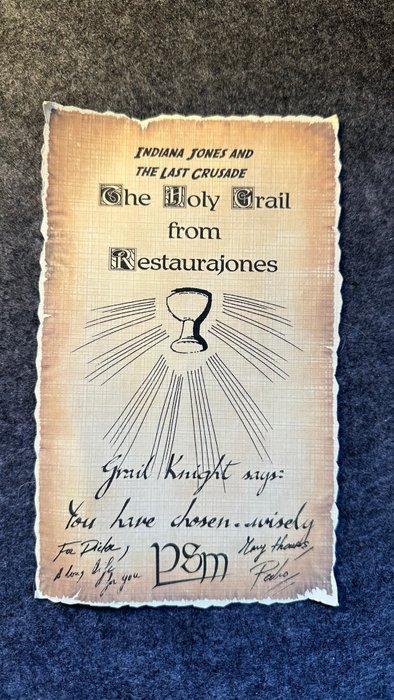 INDIANA JONES AND
THE LAST CRUSADE
The Holy Grail
from
Restaurajones
Grail Knight says:
You have chosen...wisely
For Dicke,
A long life
for you
PSM
Many thanks
Pedro